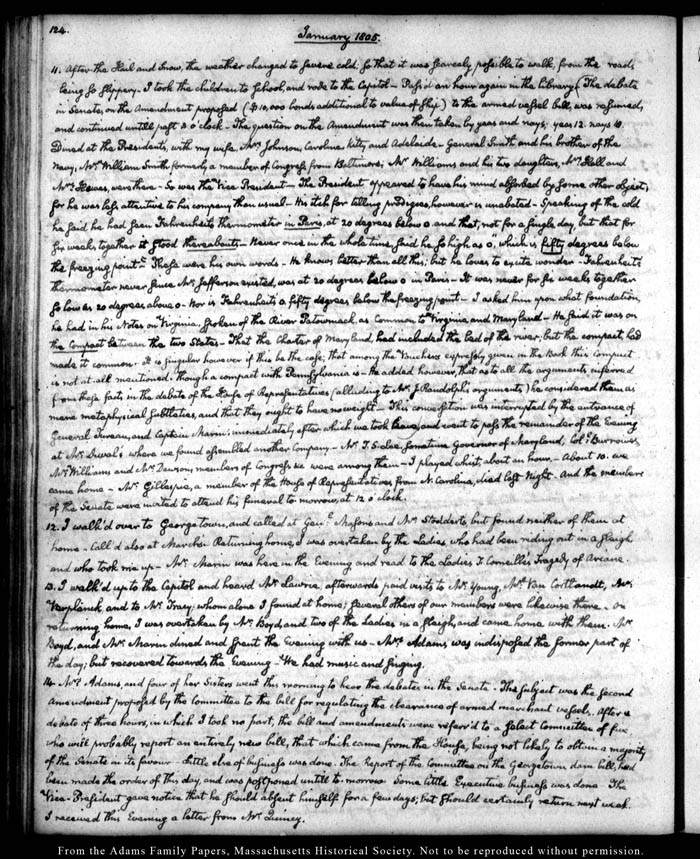 124.
January 1805.
11. After the Hail and Snow, the weather changed to severe cold: so that it was scarcely possible to walk, from the roads
being so slippery. I took the children to School, and rode to the Capitol – Pass'd an hour again in the library. The debate
in Senate, on the Amendment proposed ($10,000 bonds additional to value of ship) to the armed vessel bill, was resumed,
and continued untill past 3 o'clock – The question on the Amendment was then taken by yeas and nays; yeas 12. nays 18.
Dined at the President's, with my wife. Mrs. Johnson, Caroline, Kitty and Adelaide – General Smith and his brother of the
Navy, Mr. William Smith formerly a member of Congress from Baltimore; Mr. Williams and his two daughters, Mrs. Hall and
Mrs. Hewes, were there – So was the Vice President – The President appeared to have his mind absorbed by some other object;
for he was less attentive to his company than usual – His itch for telling prodigies, however is unabated – Speaking of the cold
he said he had seen Fahrenheit's thermometer in Paris, at 20 degrees below 0 and that, not for a single day, but that for
six weeks together it stood thereabouts – Never once in the whole time, said he so high as 0, which is fifty degrees below
the freezing point. These were his own words – He knows better than all this; but he loves to excite wonder – Fahrenheit's
thermometer never since Mr. Jefferson existed, was at 20 degrees below 0 in Paris – It was never for six weeks together
so low as 20 degrees above 0 – Nor is Fahrenheit's 0 fifty degrees below the freezing point – I asked him upon what foundation,
he had in his Notes on Virginia, spoken of the River Patowmack as common to Virginia, and Maryland – He said it was on
the Compact between the two States – That the Charter of Maryland, had included the bed of the river; but the compact, had
made it common. It is singular however if this be the case, that among the Vouchers expressly given in the Book this Compact
is not at all mentioned. Though a compact with Pennsylvania is – He added however, that as to all the arguments inferred
from these facts in the debate of the House of Representatives (alluding to Mr. J. Randolph's arguments) he considered them as
mere metaphysical subtleties, and that they ought to have no weight – This conversation was interrupted by the entrance of
General Tureau, and Captain Marin; immediately after which we took leave, and went to pass the remainder of the Evening
at Mr. Duval's where we found assembled another company – Mr. T. S. Lee sometime Governor of Maryland, Coll. Burrows,
Mr. Williams and Mr. Dawson, members of Congress &c were among them – I played whist, about an hour – About 10. we
came home – Mr. Gillespie, a member of the House of Representatives from N. Carolina, died last Night – And the members
of the Senate were invited to attend his funeral to-morrow, at 12 o'clock.
12. I walk'd over to Georgetown, and called at Genl. Mason's and Mr. Stoddert's, but found neither of them at
home – Call'd also at March's. Returning home, I was overtaken by the Ladies who had been riding out in a sleigh
and who took me up – Mr. Marin was here in the Evening and read to the Ladies T. Corneille's Tragedy of Ariane.
13. I walk'd up to the Capitol and heard Mr. Lawrie. Afterwards paid visits to Mr. Young, Mr. Van Cortlandt, Mr.
Verplanck, and to Mr. Tracy; whom alone I found at home; several others of our members were likewise there. On
returning home, I was overtaken by Mr. Boyd, and two of the Ladies in a sleigh, and came home with them. Mr.
Boyd, and Mr. Marin dined and spent the Evening with us – Mrs. Adams was indisposed the former part of
the day; but recovered towards the Evening – We had music and singing.
14. Mrs. Adams, and four of her Sisters went this morning to hear the debates in the Senate – The subject was the second
amendment proposed by the committee to the bill for regulating the clearance of armed merchant vessels. After a
debate of three hours, in which I took no part, the bill and amendments were referr'd to a select Committee of five
who will probably report an entirely new bill, that which came from the House, being not likely to obtain a majority
of the Senate in its favour – Little else of business was done. The Report of the Committee on the Georgetown dam bill, had
been made the order of this day, and was postponed untill to-morrow. Some little Executive business was done – The
Vice-President gave notice that he should absent himself for a few days; but should certainly return next week
I received this Evening a letter from Mr. Quincy.
From the Adams Family Papers, Massachusetts Historical Society. Not to be reproduced without permission.